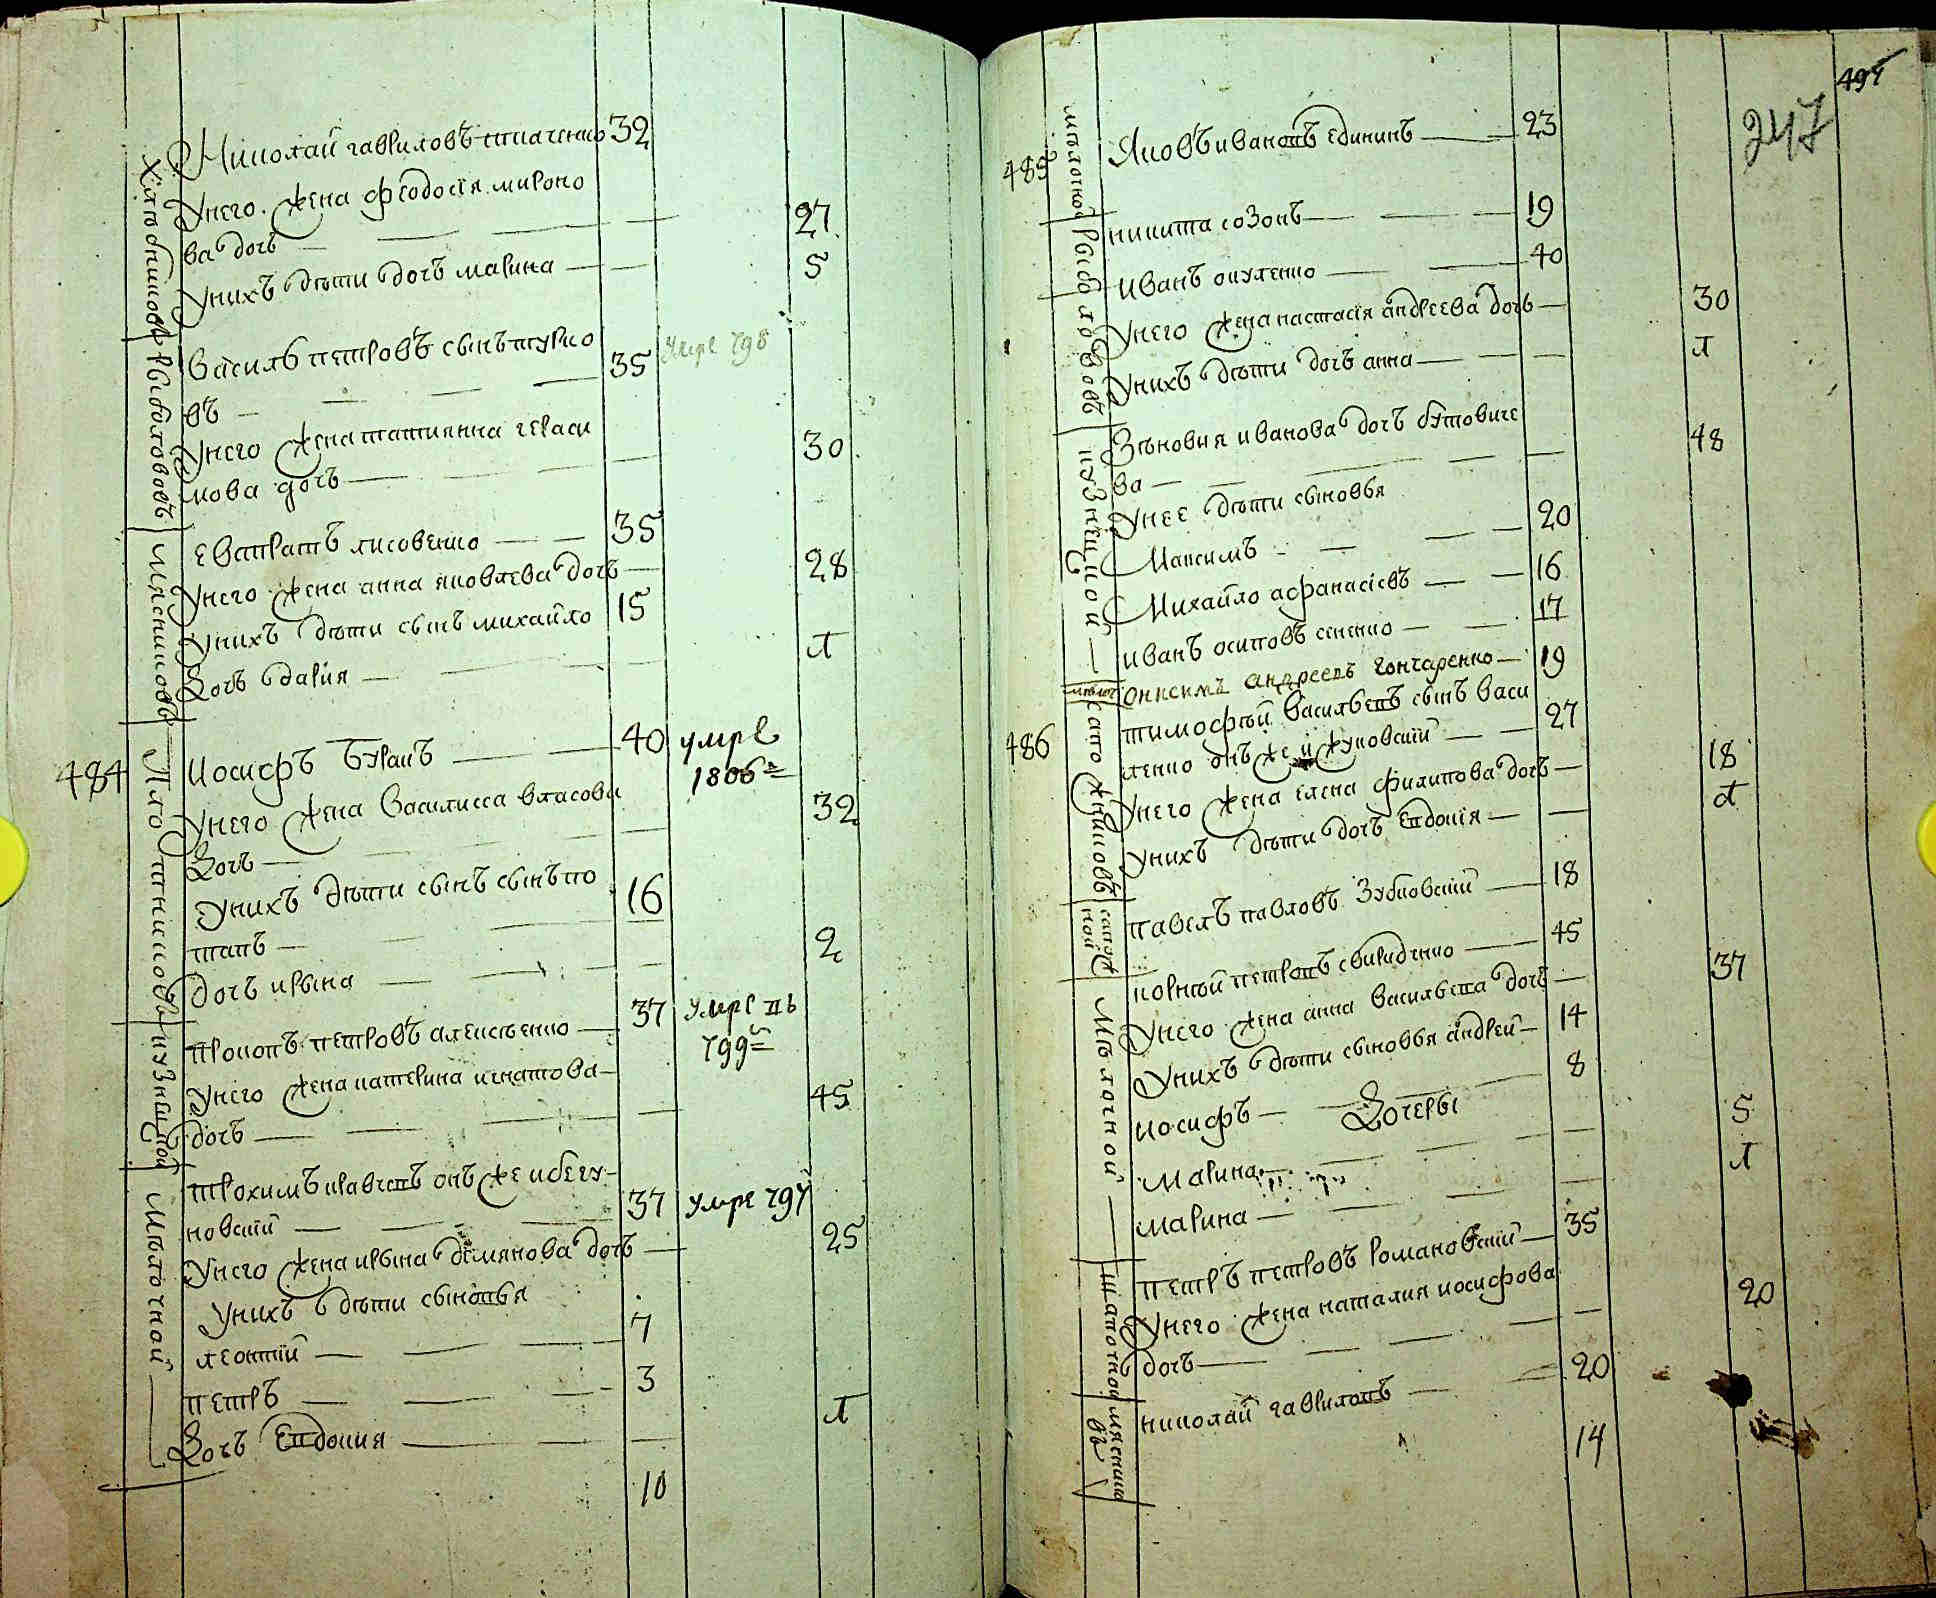 Хлѣбниковъ
Николай гавриловъ ткаченко 32
Унего жена феодосїя миро­но
ва дочь 27
Унихъ дѣти дочь марина 5
Рыболововъ
Василь петровъ сынъ турко
въ 35 умре 798
Унего жена татиянна гераси
мова дочь 30
Мясниковъ
Евстратъ лисовенко 35
Унего жена анна яковлева дочь 28
Унихъ дѣти сынъ михайло 15
Дочь дария л
484
Плотниковъ
Иосифъ Буракъ 40 умре
1806
Унего жена василисса власова
Дочь 32
Унихъ дѣти сынъ сынъ по
тапъ 16
Дочь ирына 2
кузнецкой
Прокопъ петровъ алексѣенко 37 умре въ
799
Унего жена катерина игнатова
дочь 45
Мѣлочной
Трохимъ кравчевъ онъ же и бегу
новский 37 умре 797
Унего жена ирына демянова дочь 25
Унихъ дѣти сыновья
леонтий 7
петръ 3
Дочь Евдокия л
10
497
247
485
мѣлочной
Яковъ ивановъ единикъ 23
Рыболововъ
никита созонъ 19
Иванъ окуленко 40
Унего жена настасїя андреева дочь 30
Унихъ дѣти дочь анна л
кузнецкой
Зѣновия иванова дочь бутовиче
ва 48
Унее дѣти сыновья
Максимъ 20
Михайло афанасїевъ 16
иванъ осиповъ сененко 17
онисимъ андреевъ гончаренко 19
486
сапожниковъ
тимофѣй васильевъ сынъ васи
ленко онъ же и жуковский 27
Унего жена елена филипова дочь 18
Унихъ дѣти дочь Евдокїя л
павелъ павловъ Зубковский 18
Мѣлочной
корнѣй петровъ свириденко 45
Унего жена анна васильева дочь 37
Унихъ дѣти сыновья андрей 14
иосифъ 8
Дочеры
марина 5
марина л
Шапочной
петръ петровъ романовский 35
Унего жена наталия иосифова
дочь 20
мяснико
въ
николай гавриловъ 20
14